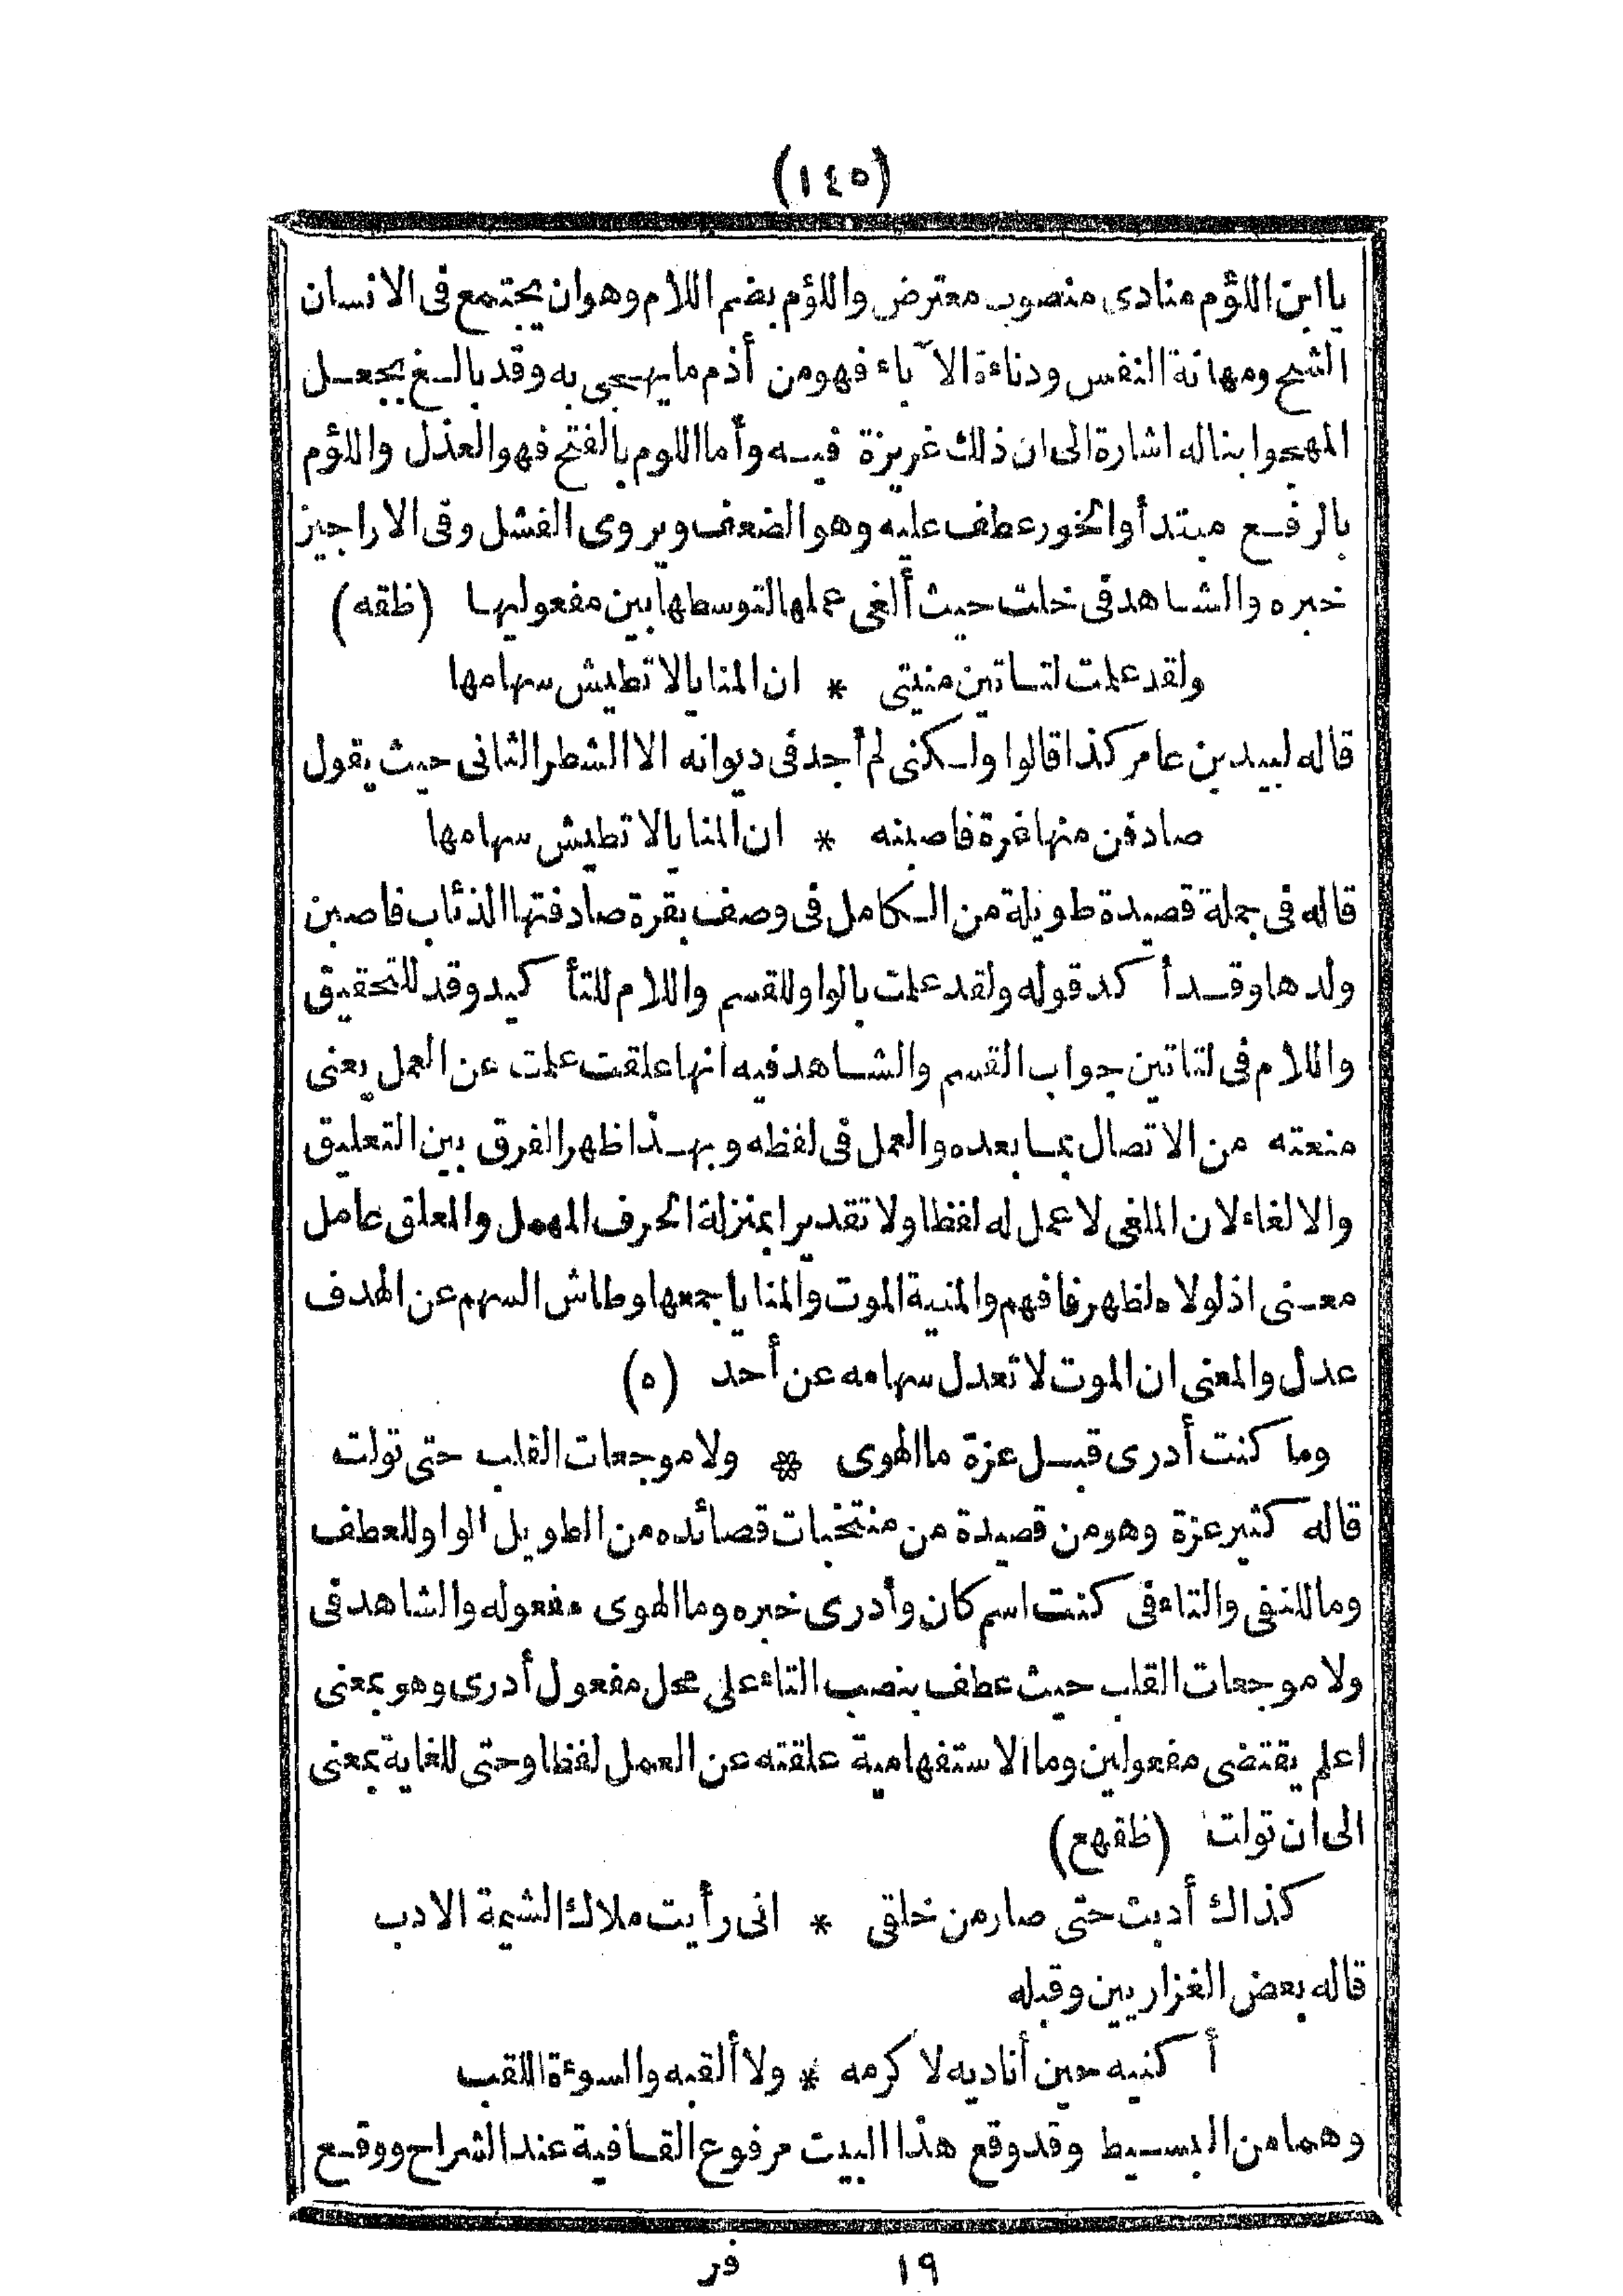 (١٤٥)
يا ابن اللؤم منادى منصوب معترض واللؤم بضم اللام وهو ان يجتمع فى الانسان
الشح ومهانة النفس ودناءة الآباء فهو من أذم ما يهجى به وقد بالغ بجعل
المهجو ابنا له اشارة الى ان ذلك غريزة فيه وأما اللوم بالفتح فهو العذل واللؤم
بالرفع مبتدأ والخور عطف عليه وهو الضعف ويروى الفشل وفى الاراجيز
خبره والشاهد فى خلت حيث ألغى عملها لتوسطها بين مفعوليها (ظقه)
ولقد علمت لتاتين منيتى * ان المنايا لا تطيش سهامها
قاله لبيد بن عامر كذا قالوا ولكنى لم أجد فى ديوانه الا الشطر الثانى حيث يقول
صادفن منها غرة فاصبنه * ان المنايا لا تطيش سهامها
قاله فى جملة قصيدة طويلة من الكامل فى وصف بقرة صادفتها الذئاب فاصبن
ولدها وقد أكد قوله ولقد علمت بالواو للقسم واللام للتأكيد وقد للتحقيق
واللام فى لتاتين جواب القسم والشاهد فيه انها علقت علمت عن العمل يعنى
منعته من الاتصال بما بعده والعمل فى لفظه وبهذا ظهر الفرق بين التعليق
والالغاء لان الملغى لا عمل له لفظا ولا تقديرا بمنزلة الحرف المهمل والمعلق عامل
معنى اذ لولاه لظهر فافهم والمنية الموت والمنايا جمعها وطاش السهم عن الهدف
عدل والمعنى ان الموت لا تعدل سهامه عن أحد (ه)
وما كنت أدرى قبل عزة ما الهوى * ولا موجعات القلب حتى تولت
قاله كثير عزة وهو من قصيدة من منتخبات قصائده من الطويل الواو للعطف
وما للنفى والتاء فى كنت اسم كان وأدرى خبره وما الهوى مفعوله والشاهد فى
ولا موجعات القلب حيث عطف بنصب التاء على محل مفعول أدرى وهو بمعنى
اعلم يقتضى مفعولين وما الاستفهامية علقته عن العمل لفظا وحتى للغاية بمعنى
الى ان تولت (ظقهع)
كذاك أدبت حتى صار من خلقى * انى رأيت ملاك الشيمة الادب
قاله بعض الغزاريين وقبله
أكنيه حين أناديه لاكرمه * ولا ألقبه والسوءة اللقب
وهما من البسيط وقد وقع هذا البيت مرفوع القافية عند الشراح ووقع
١٩ فر